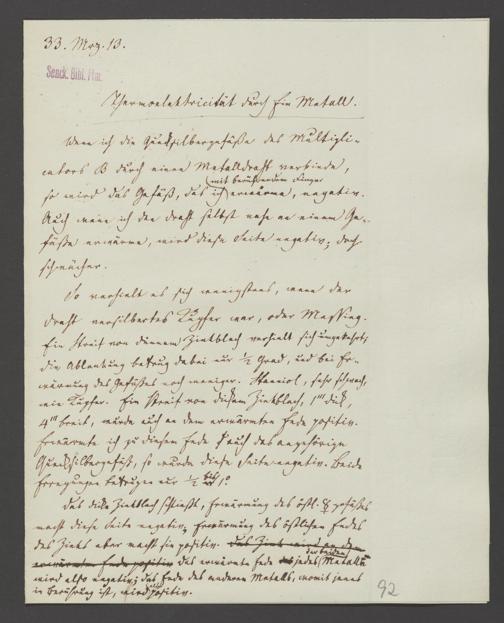 33. Mrz. 13.
Senck. Bibl. Ffm.
Thermoelektricität durch Ein Metall.
Wenn ich die Quecksilbergefäße des Multipli-
cators B durch einen Metalldraht verbinde,
mit berührendem Finger
so wird das Gefäß, das ich erwärme, negativ.
Auch wenn ich den Draht selbst nahe an einem Ge-
fäße erwärme, wird diese Seite negativ, doch
schwächer.
So verhielt es sich wenigstens, wenn der
Draht versilbertes Kupfer war, oder Messing.
Ein Streif von dünnem Zinkblech verhielt sich umgekehrt,
die Ablenkung betrug dabei nur ½ Grad, und bei Er-
wärmung des Gefäßes noch weniger. Stanniol, sehr schwach,
wie Kupfer. Ein Streif von dickem Zinkblech, 1''' dick,
4''' breit, wurde auch an dem erwärmten Ende positiv.
Erwärmte ich zu diesem Ende auch das zugehörige
Quecksilbergefäß, so wurde diese Seite negativ. Beide
Erregungen betrugen nur ½ bis 1°
Das dicke Zinkblech schließt, Erwärmung des östl. Gefäßes
macht diese Seite negativ, Erwärmung des östlichen Endes
des Zinks aber macht sie positiv. Das Zink wird an dem
der beiden
erwärmten Ende positiv das erwärmte Ende jedes Metalls
wird also negativ; das Ende des anderen Metalls, womit jenes
in Berührung ist, wird positiv.
92